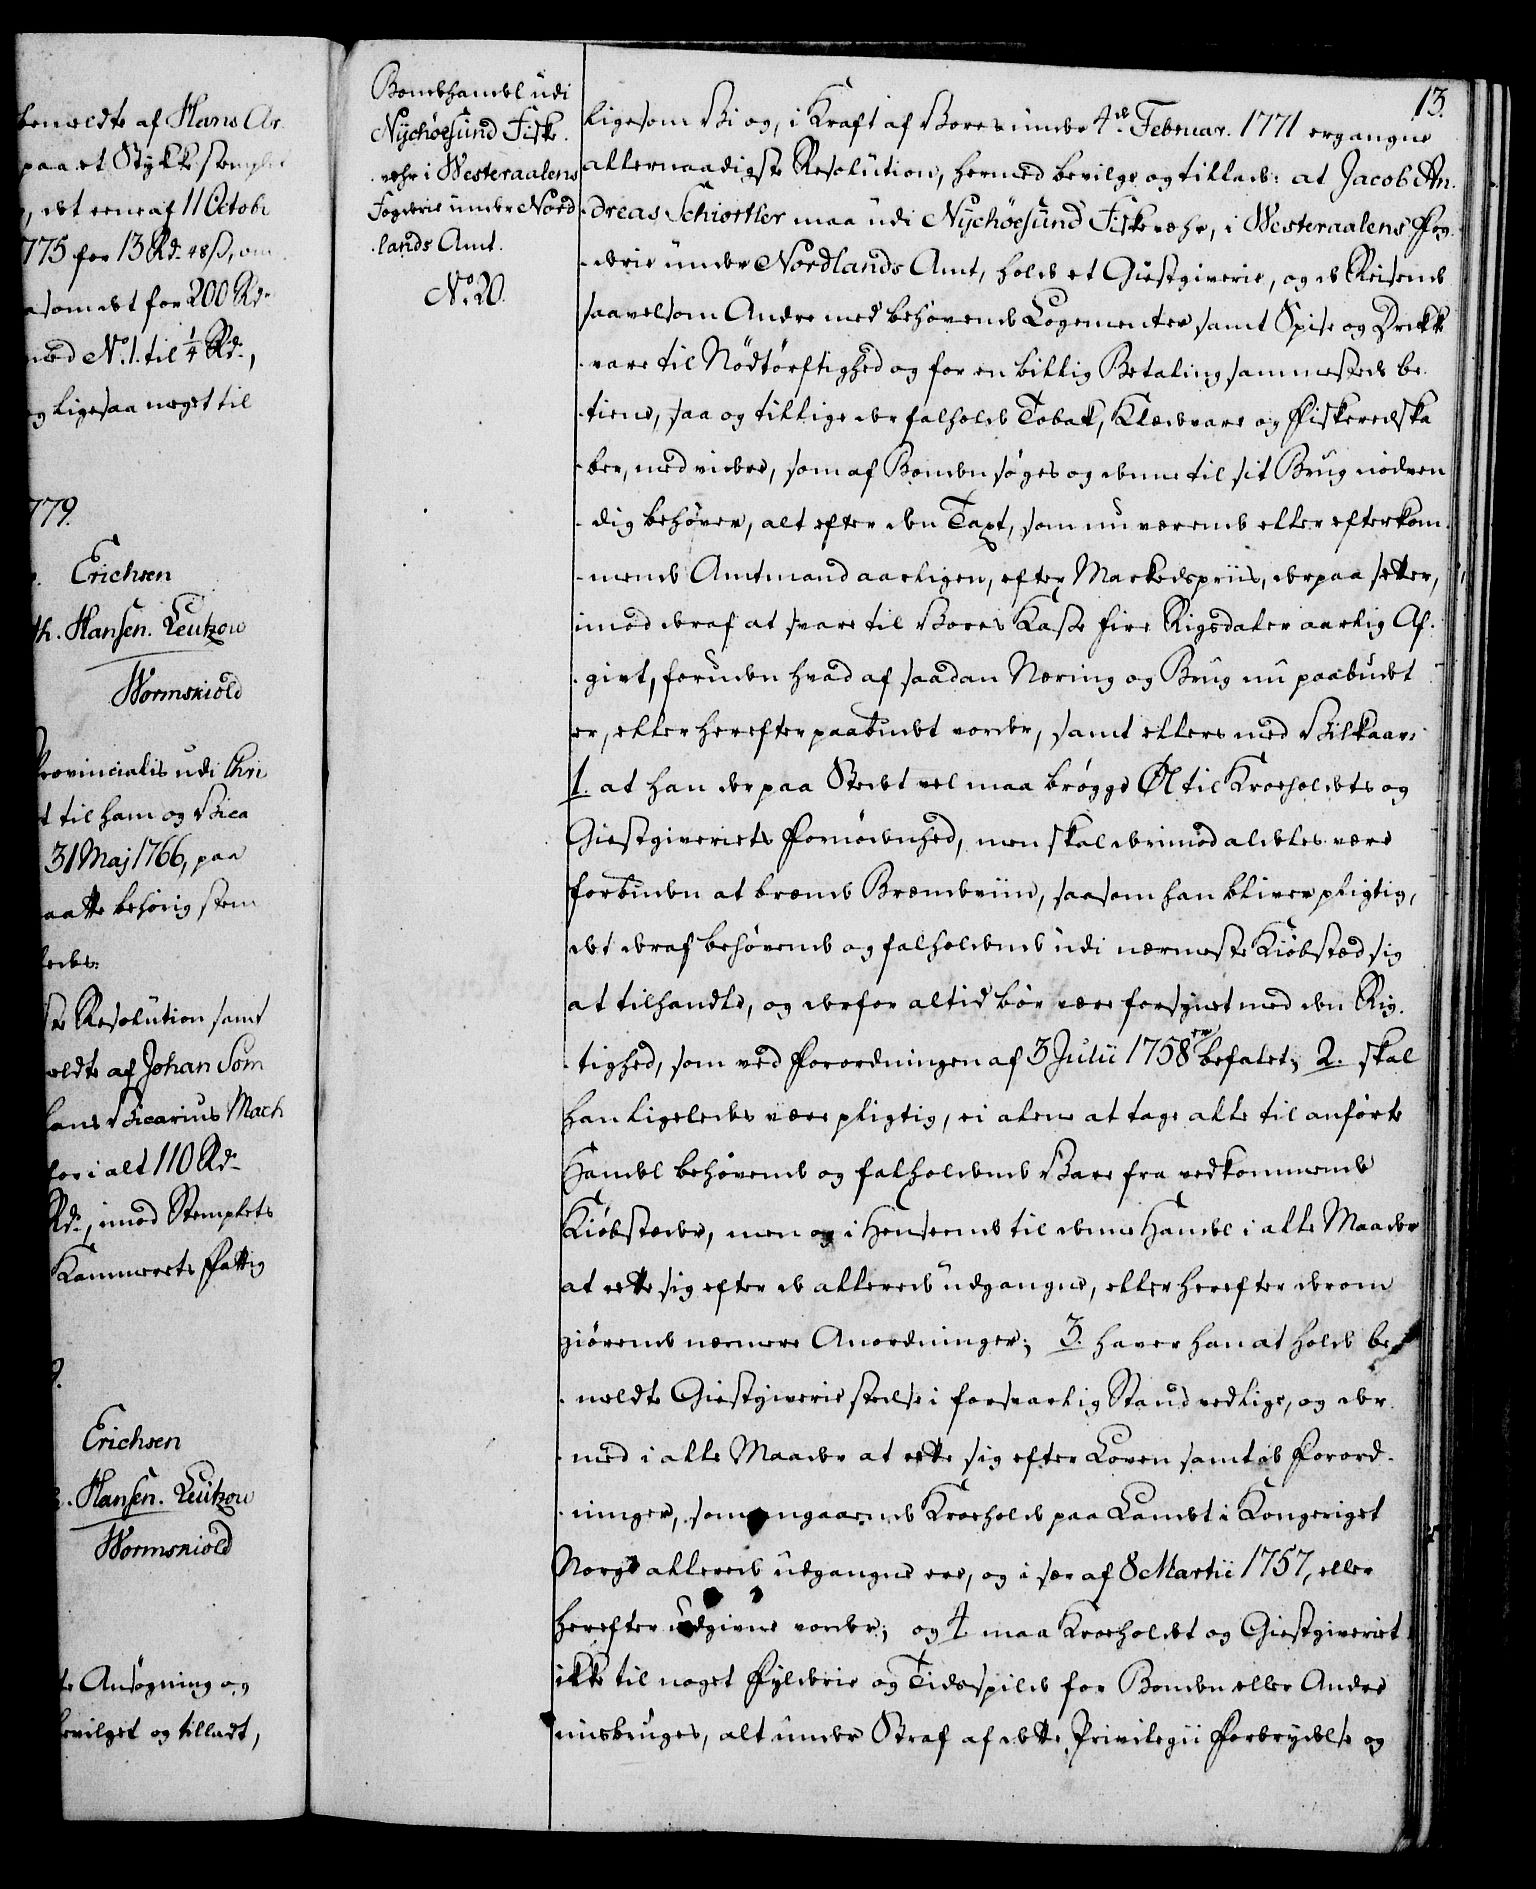 benældte af Hans Ar
paa et Stykke stemplet
, det eene af 11 Octobr
775 for 13 Rd. 48 ß, om
som det for 200 Rdr
med No. 1. til 1/4 Rd.,
og ligesaa meget til
779.
Erichsen
th. Hansen. Leutzow
Wormskiold
Provincialis udi Chri
t til ham og Vica
31 Maj 1766, paa
aatte behørig stem
ledes:
ste Resolution samt
ældte af Johan Som
hans Vicarius Mach
for i alt 110 Rdr
Rdr, imod Stemplets
Kammerets Fattig
9.
Erichsen
h. Hansen. Leutzow
Wormskiold
te Ansøgning og
bevilget og tilladt,
Bondehandel udi
Nychöesund Fiske
-vehr i Westeraalens
Fogderie under Nord
-lands Amt.
No. 20.
13.
ligesom Vi og, i Kraft af Vores under 4de Februar. 1771 ergangne
allernaadigste Resolution, hermed bevilge og tillade: at Jacob An-
-dreas Schiortler maa udi Nychöesund Fiskevehr, i Westeraalens Fog-
-derie under Nordlands Amt, holde et Giestgiverie, og de Reisende
saavelsom Andre med behøvende Logementer samt Spise og Drikke
-vare til Nödtörftighed og for en billig Betaling sammesteds be-
-tiene, saa og tillige der falholde Tobak, Klædevare og Fiskeredska
-ber, med videre, som af Bonden søges og denne til sit Brug nödven
-dig behøver, alt efter den Taxt, som nu værende eller efterkom-
-mende Amtmand aarligen, efter Markedspriis, derpaa sætter,
imod deraf at svare til Vores Kasse fire Rigsdaler aarlig Af-
-givt, foruden hvad af saadan Næring og Brug nu paabudet
er, eller herefter paabudet vorder, samt ellers med Vilkaar:
1. at han der paa Stedet vel maa brøgge Øl til Kroeholdets og
Giestgiveriets Fornødenhed, men skal derimod aldeles være
forbuden at brænde Brændeviin, saasom han bliver pligtig,
det deraf behøvende og falholdende udi nærmeste Kiøbstæd sig
at tilhandle, og derfor altid bør være forsynet med den Rig-
-tighed, som ved Forordningen af 3 Julii 1758 er befalet; 2. skal
han ligeledes være pligtig, ei alene at tage alle til anførte
Handel behøvende og falholdende Vare fra vedkommende
Kiøbstæder, men og i Henseende til denne Handel i alle Maader
at rette sig efter de allerede udgangne, eller herefter derom
giørende nærmere Anordninger; 3. haver han at holde be-
-meldte Giestgiverie stedse i forsvarlig Stand vedlige, og der-
-med i alle Maader at rette sig efter Loven samt de Forord-
-ninger, som angaaende Kroehold paa Landet i Kongeriget
Norge allerede udgangne ere, og i sær af 8 Martii 1757, eller
herefter udgivne vorder; og 4 maa Kroeholdet og Giestgiveriet
ikke til noget Fylderie og Tidsspilde for Bonden eller Andre
misbruges, alt under Straf af dette Privilegii Forbrydelse og